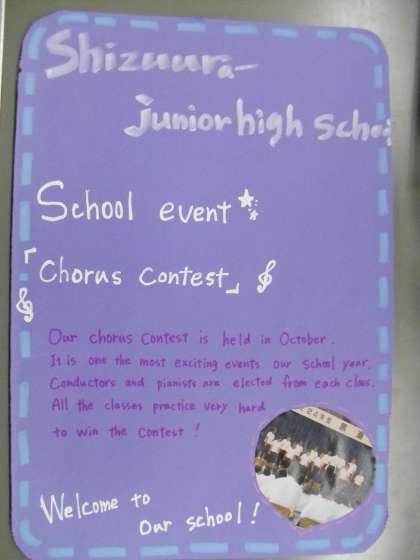 Shizuura
junior high school
School event
「Chorus Contest」
Our chorus contest is held in October.
It is one the most exciting events our school year.
Conductors and pianists are elected from each class.
All the classes practice very hard
to win the contest!
Welcome to
our school!